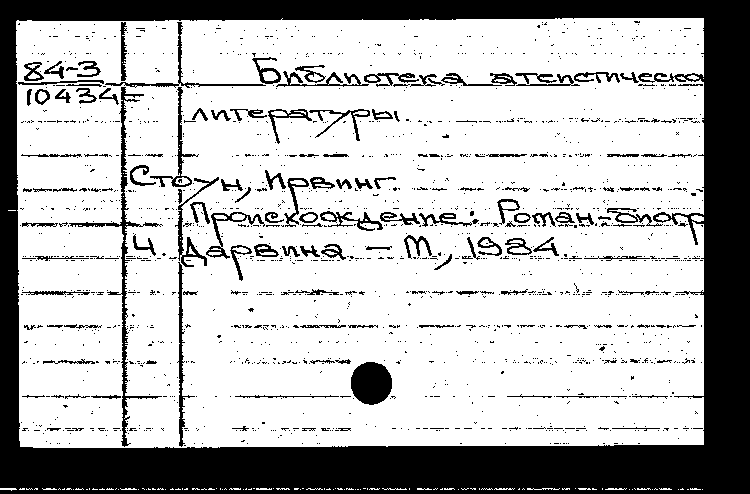 84-3 Библиотека атеистическо
10434=
литературы.
Стоун, Ирвинг.
Происхождение: Роман-биогр
Ч. Дарвина. — М., 1984.